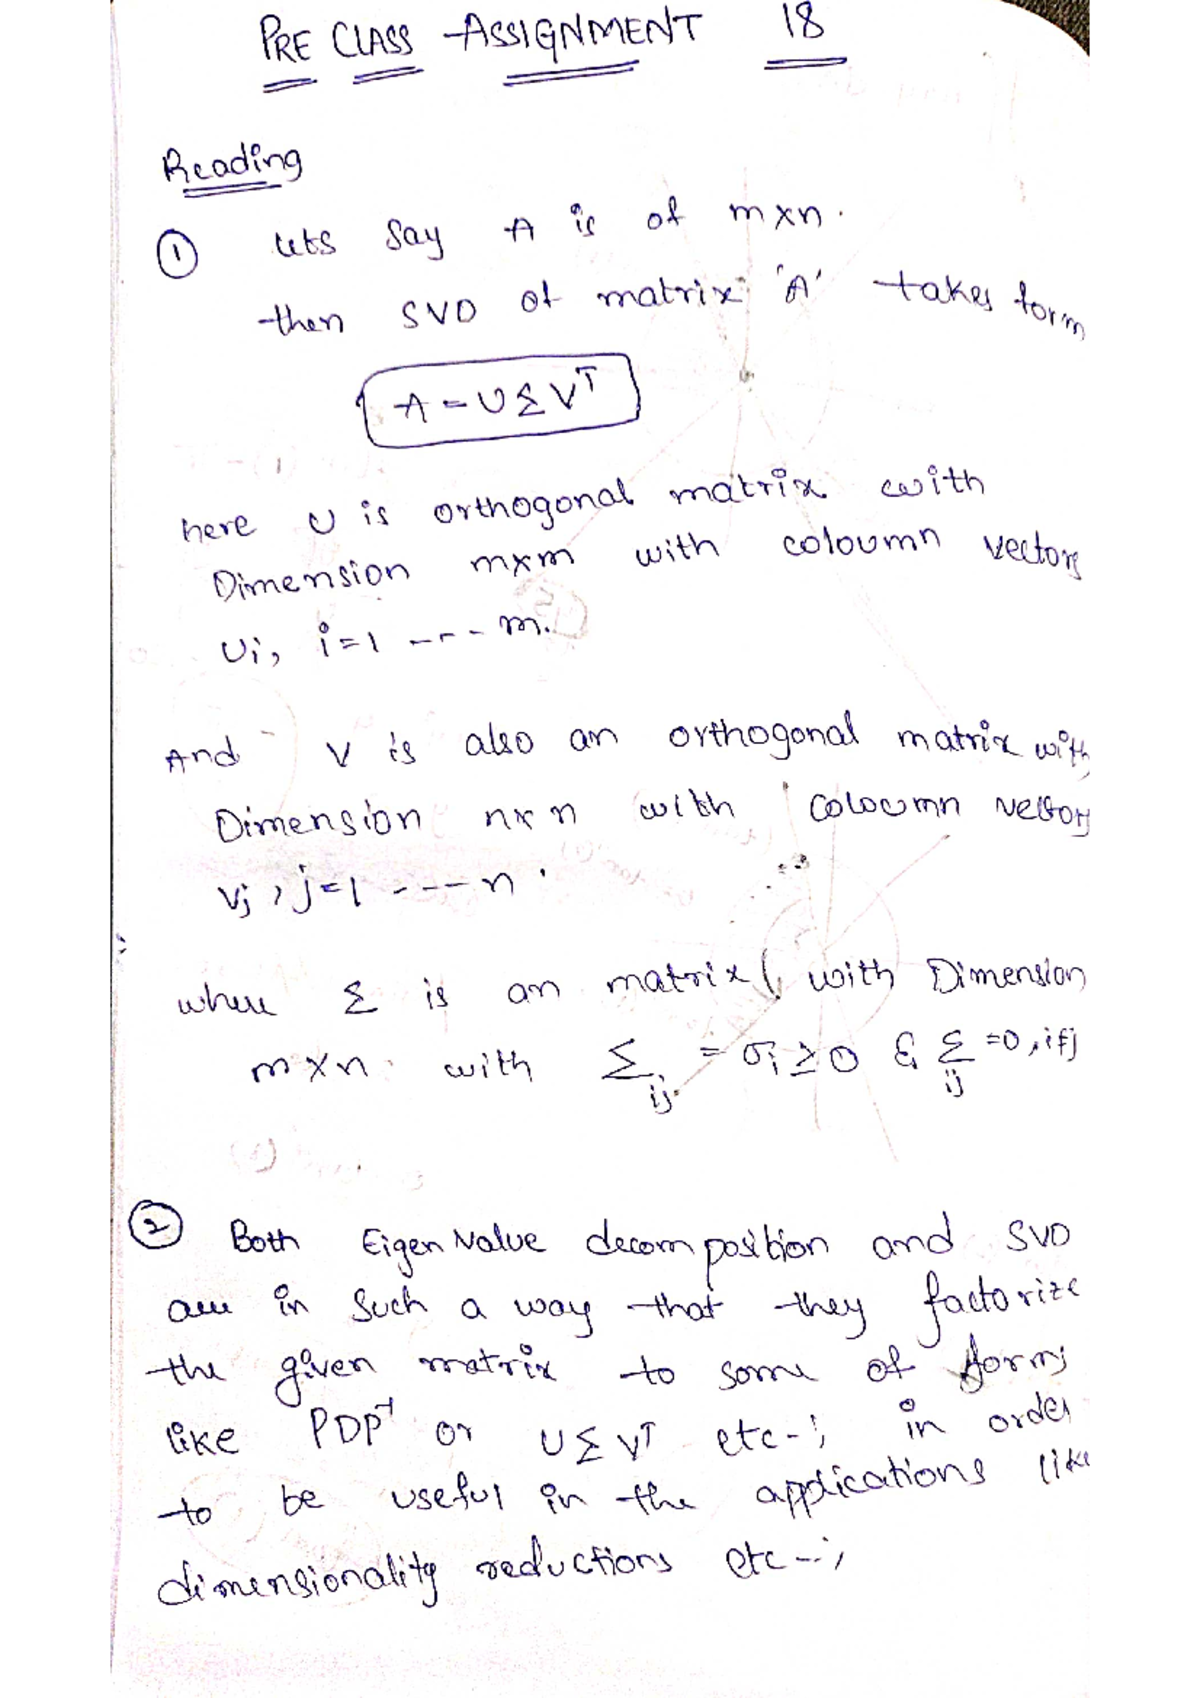 PRE CLASS ASSIGNMENT 18
Reading
① Lets Say A is of m×n.
then SVD of matrix 'A' takes form
A = UΣV^T
here U is orthogonal matrix with
Dimension m×m with coloumn vectors
Ui, i=1 ---- m.
And V is also an orthogonal matrix with
Dimension n×n with coloumn vectors
Vj, j=1 ---- n.
where Σ is an matrix with Dimension
m×n with Σij = σi ≥ 0 & Σij =0, ifj
② Both Eigen Value decomposition and SVD
are in such a way that they factorize
the given matrix to some of forms
like PDP^-1 or UΣV^T etc--, in order
to be useful in the applications like
dimensionality reductions etc--,